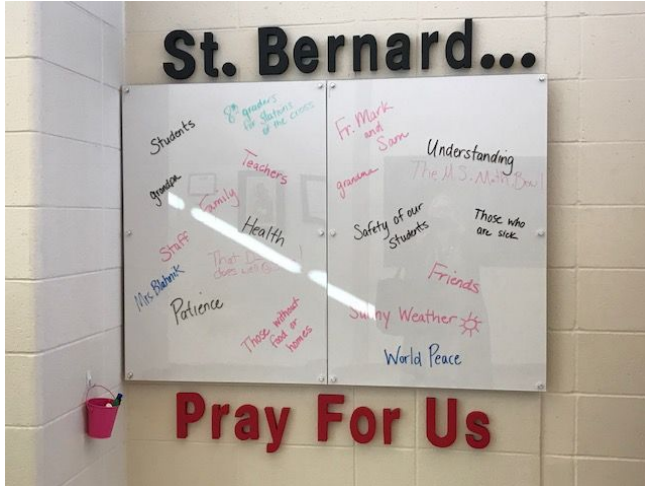 St. Bernard...
8th graders
for Stations
of the cross
Students
Teachers
grandpa
Family
Health
Staff
That
does well
Mrs.
Patience
Those without
food or
homes
Fr. Mark
and
Sam
Understanding
The M.S. Math Bowl
grandma
Safety of our
Students
Those who
are sick
Friends
Sunny Weather
World Peace
Pray For Us